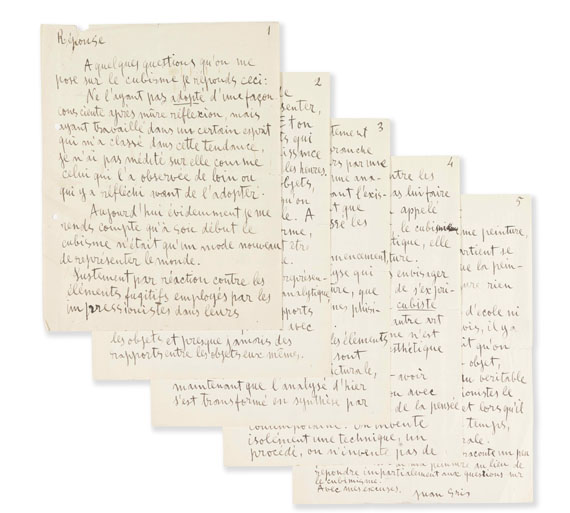 1
Réponse
A quelques questions qu'on me
pose sur le cubisme je réponds ceci:
Ne l'ayant pas adopté d'une façon
consciente après mûre réflexion, mais
ayant travaillé dans un certain esprit
qui m'a classé dans cette tendance,
je n'ai pas médité sur elle comme
celui qui l'a observée de loin ou
qui y a réfléchi avant de l'adopter.
Aujourd'hui évidemment je me
rends compte qu'à son début le
cubisme n'était qu'un mode nouveau
de représenter le monde.
Justement par réaction contre les
éléments fugitifs employés par les
impressionistes dans leurs
2
senter,
et on
ts qui
issance
les heures.
objets
qu'on
e. A
être
représen-
analytique
rapports
avec
les objets et presque jamais des
rapports entre les objets eux mêmes.
3
tement
branche
rs par une
me ana-
ant l'exis-
nt que
sse les
mencement
lyse qui
re, que
nes physi-
les éléments
sont
picturale,
maintenant que l'analyse d'hier
s'est transformé en synthèse par
4
ntre les
as lui faire
appelé
le cubisme
étique, elle
ture.
s envisager
de s'expri-
cubiste
autre art
ne n'est
sthétique
avoir
on avec
de la pensée
contemporaine. On invente
isolément une technique, un
procédé, on n'invente pas de
5
me peinture,
partient se
e la pein-
ture rien
d'école ni
ois, il y a
it qu'on
objet,
u véritable
sionistes le
et lorsqu'il
temps,
rale.
raconte un peu
au lieu de
répondre impartialement aux questions sur
le cubimisme.
Avec mes excuses.
Juan Gris